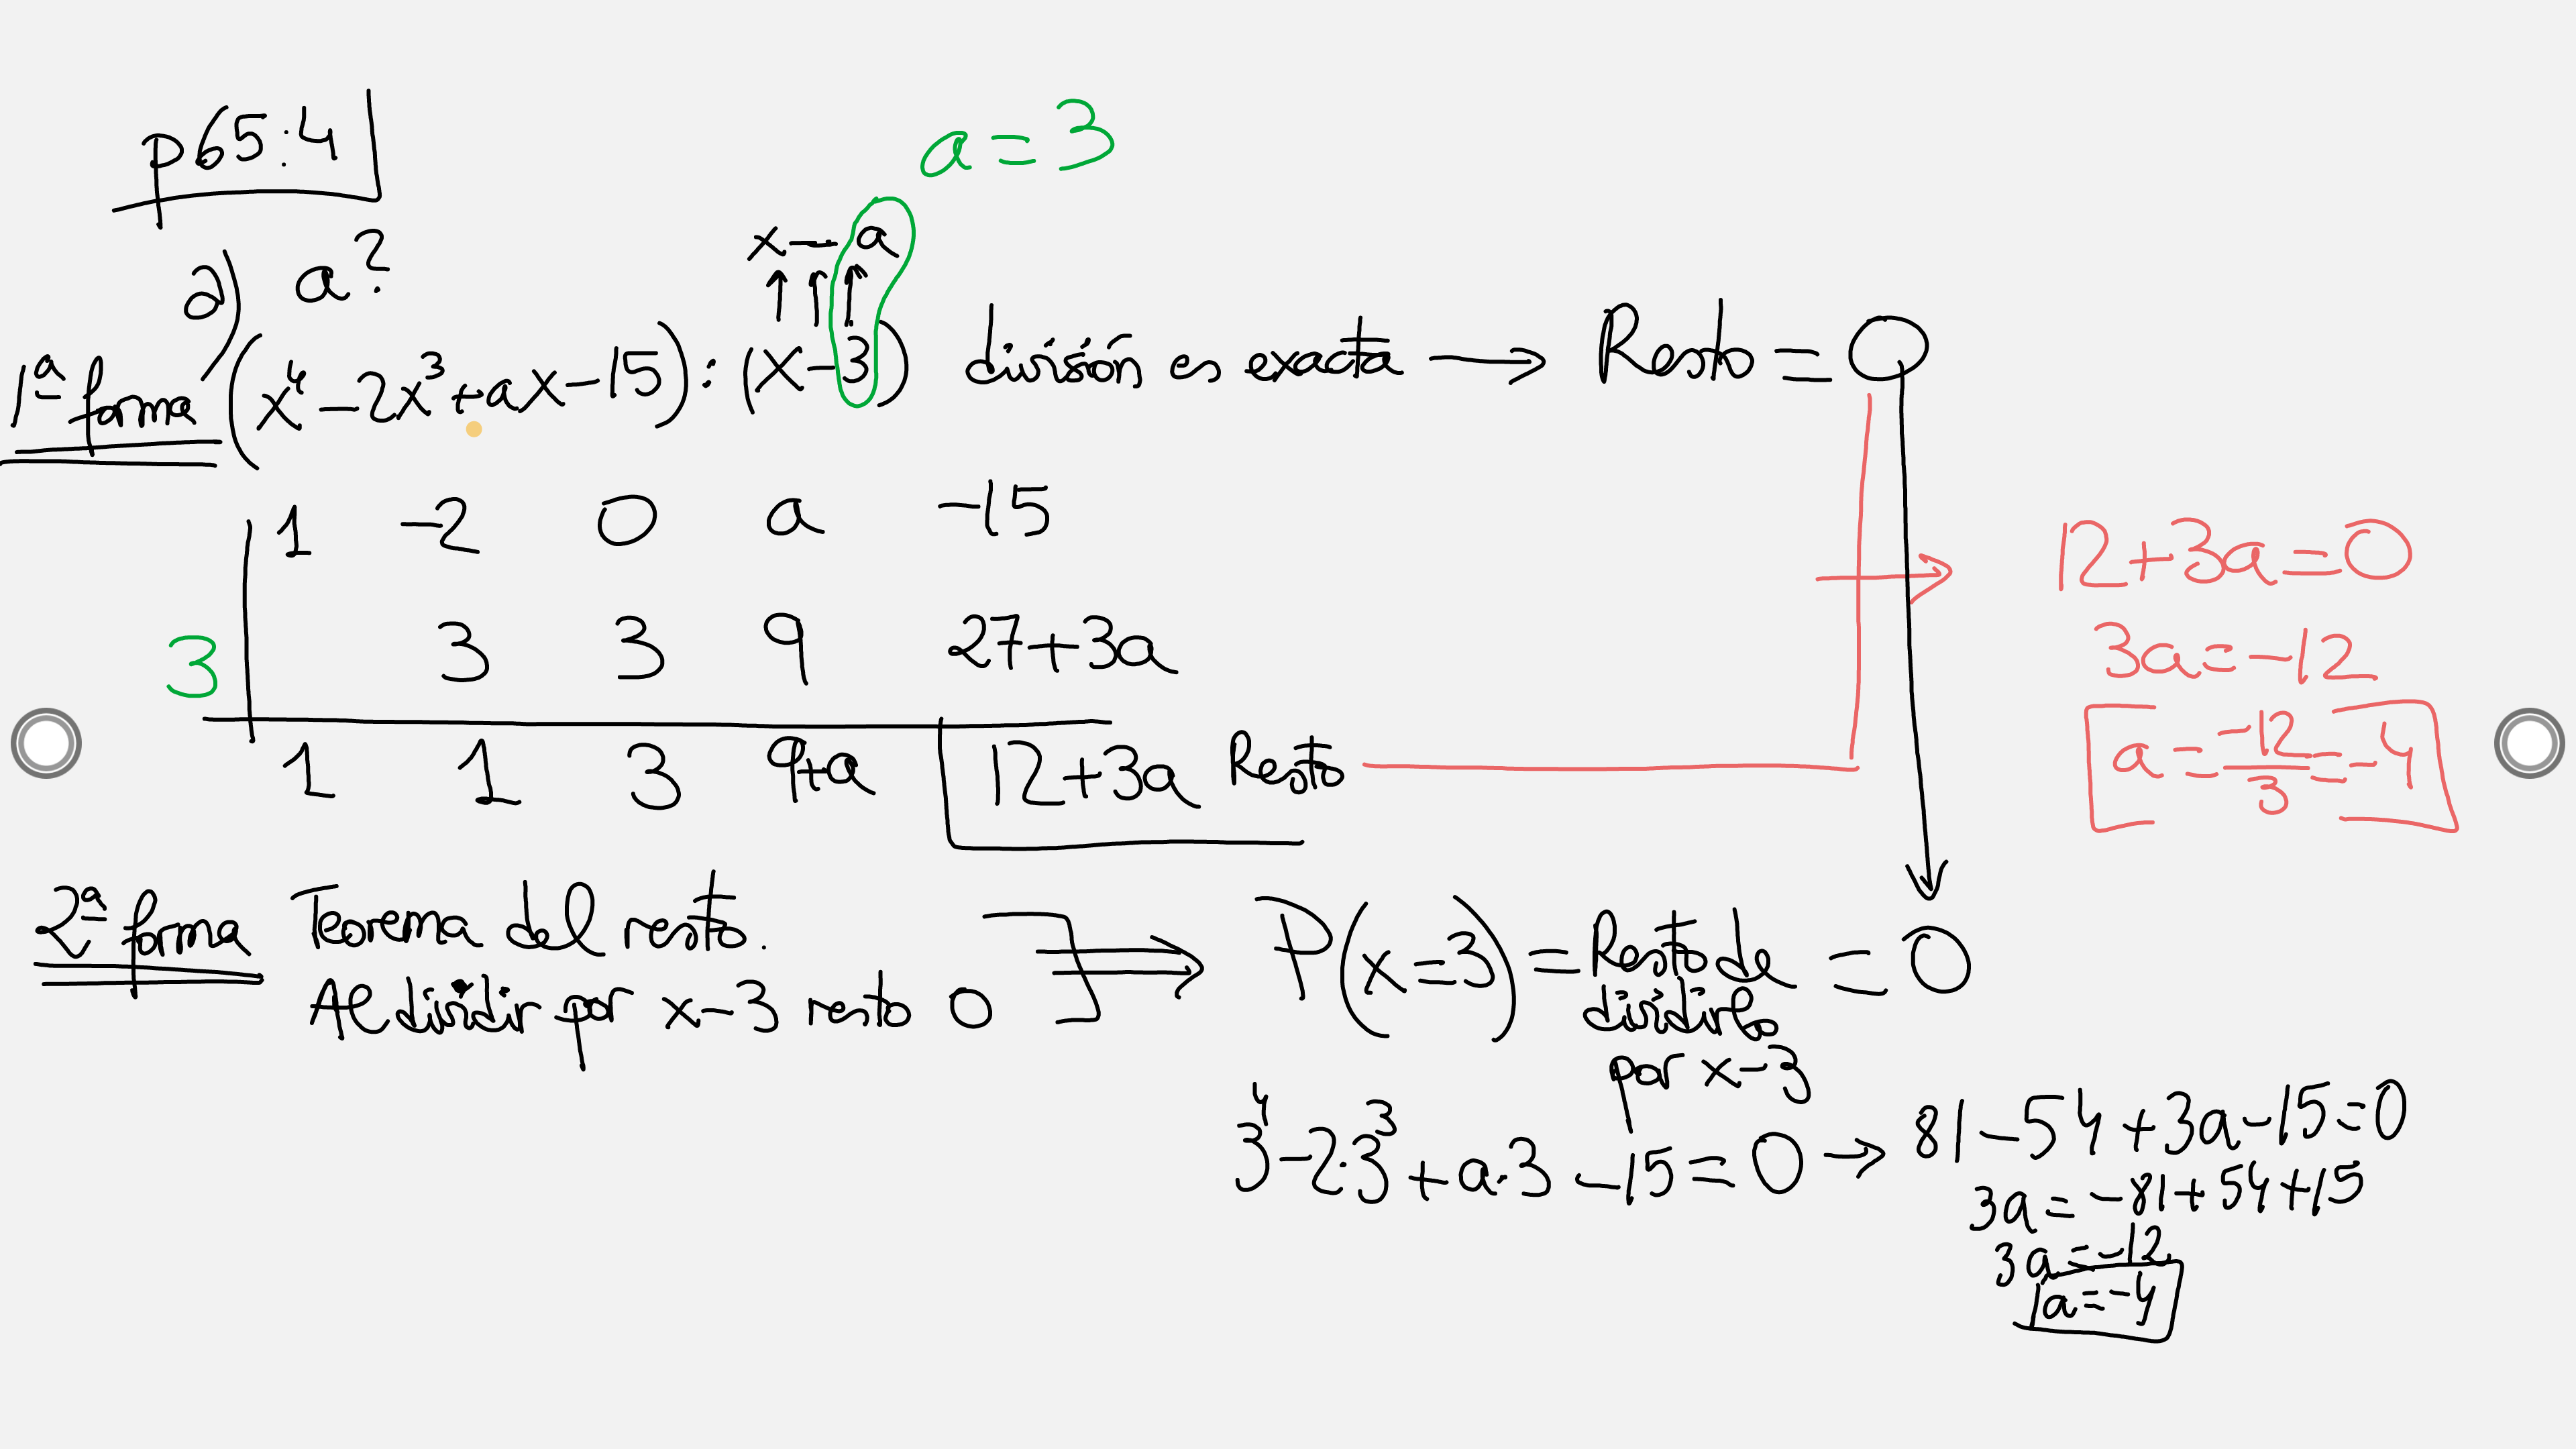 p65:4
a = 3
a) a?
x - a
1ª forma (x⁴ - 2x³ + ax - 15) : (x - 3) división es exacta → Resto = 0
1 -2 0 a -15
3 3 3 9 27+3a
1 1 3 9+a 12+3a Resto
12+3a=0
3a=-12
a = -12/3 = -4
2ª forma Teorema del resto.
Al dividir por x-3 resto 0
⇒ P(x=3) = Resto de = 0
dividirlo
por x-3
3⁴ - 2·3³ + a·3 - 15 = 0 → 81 - 54 + 3a - 15 = 0
3a = -81 + 54 + 15
3a = -12
a = -4